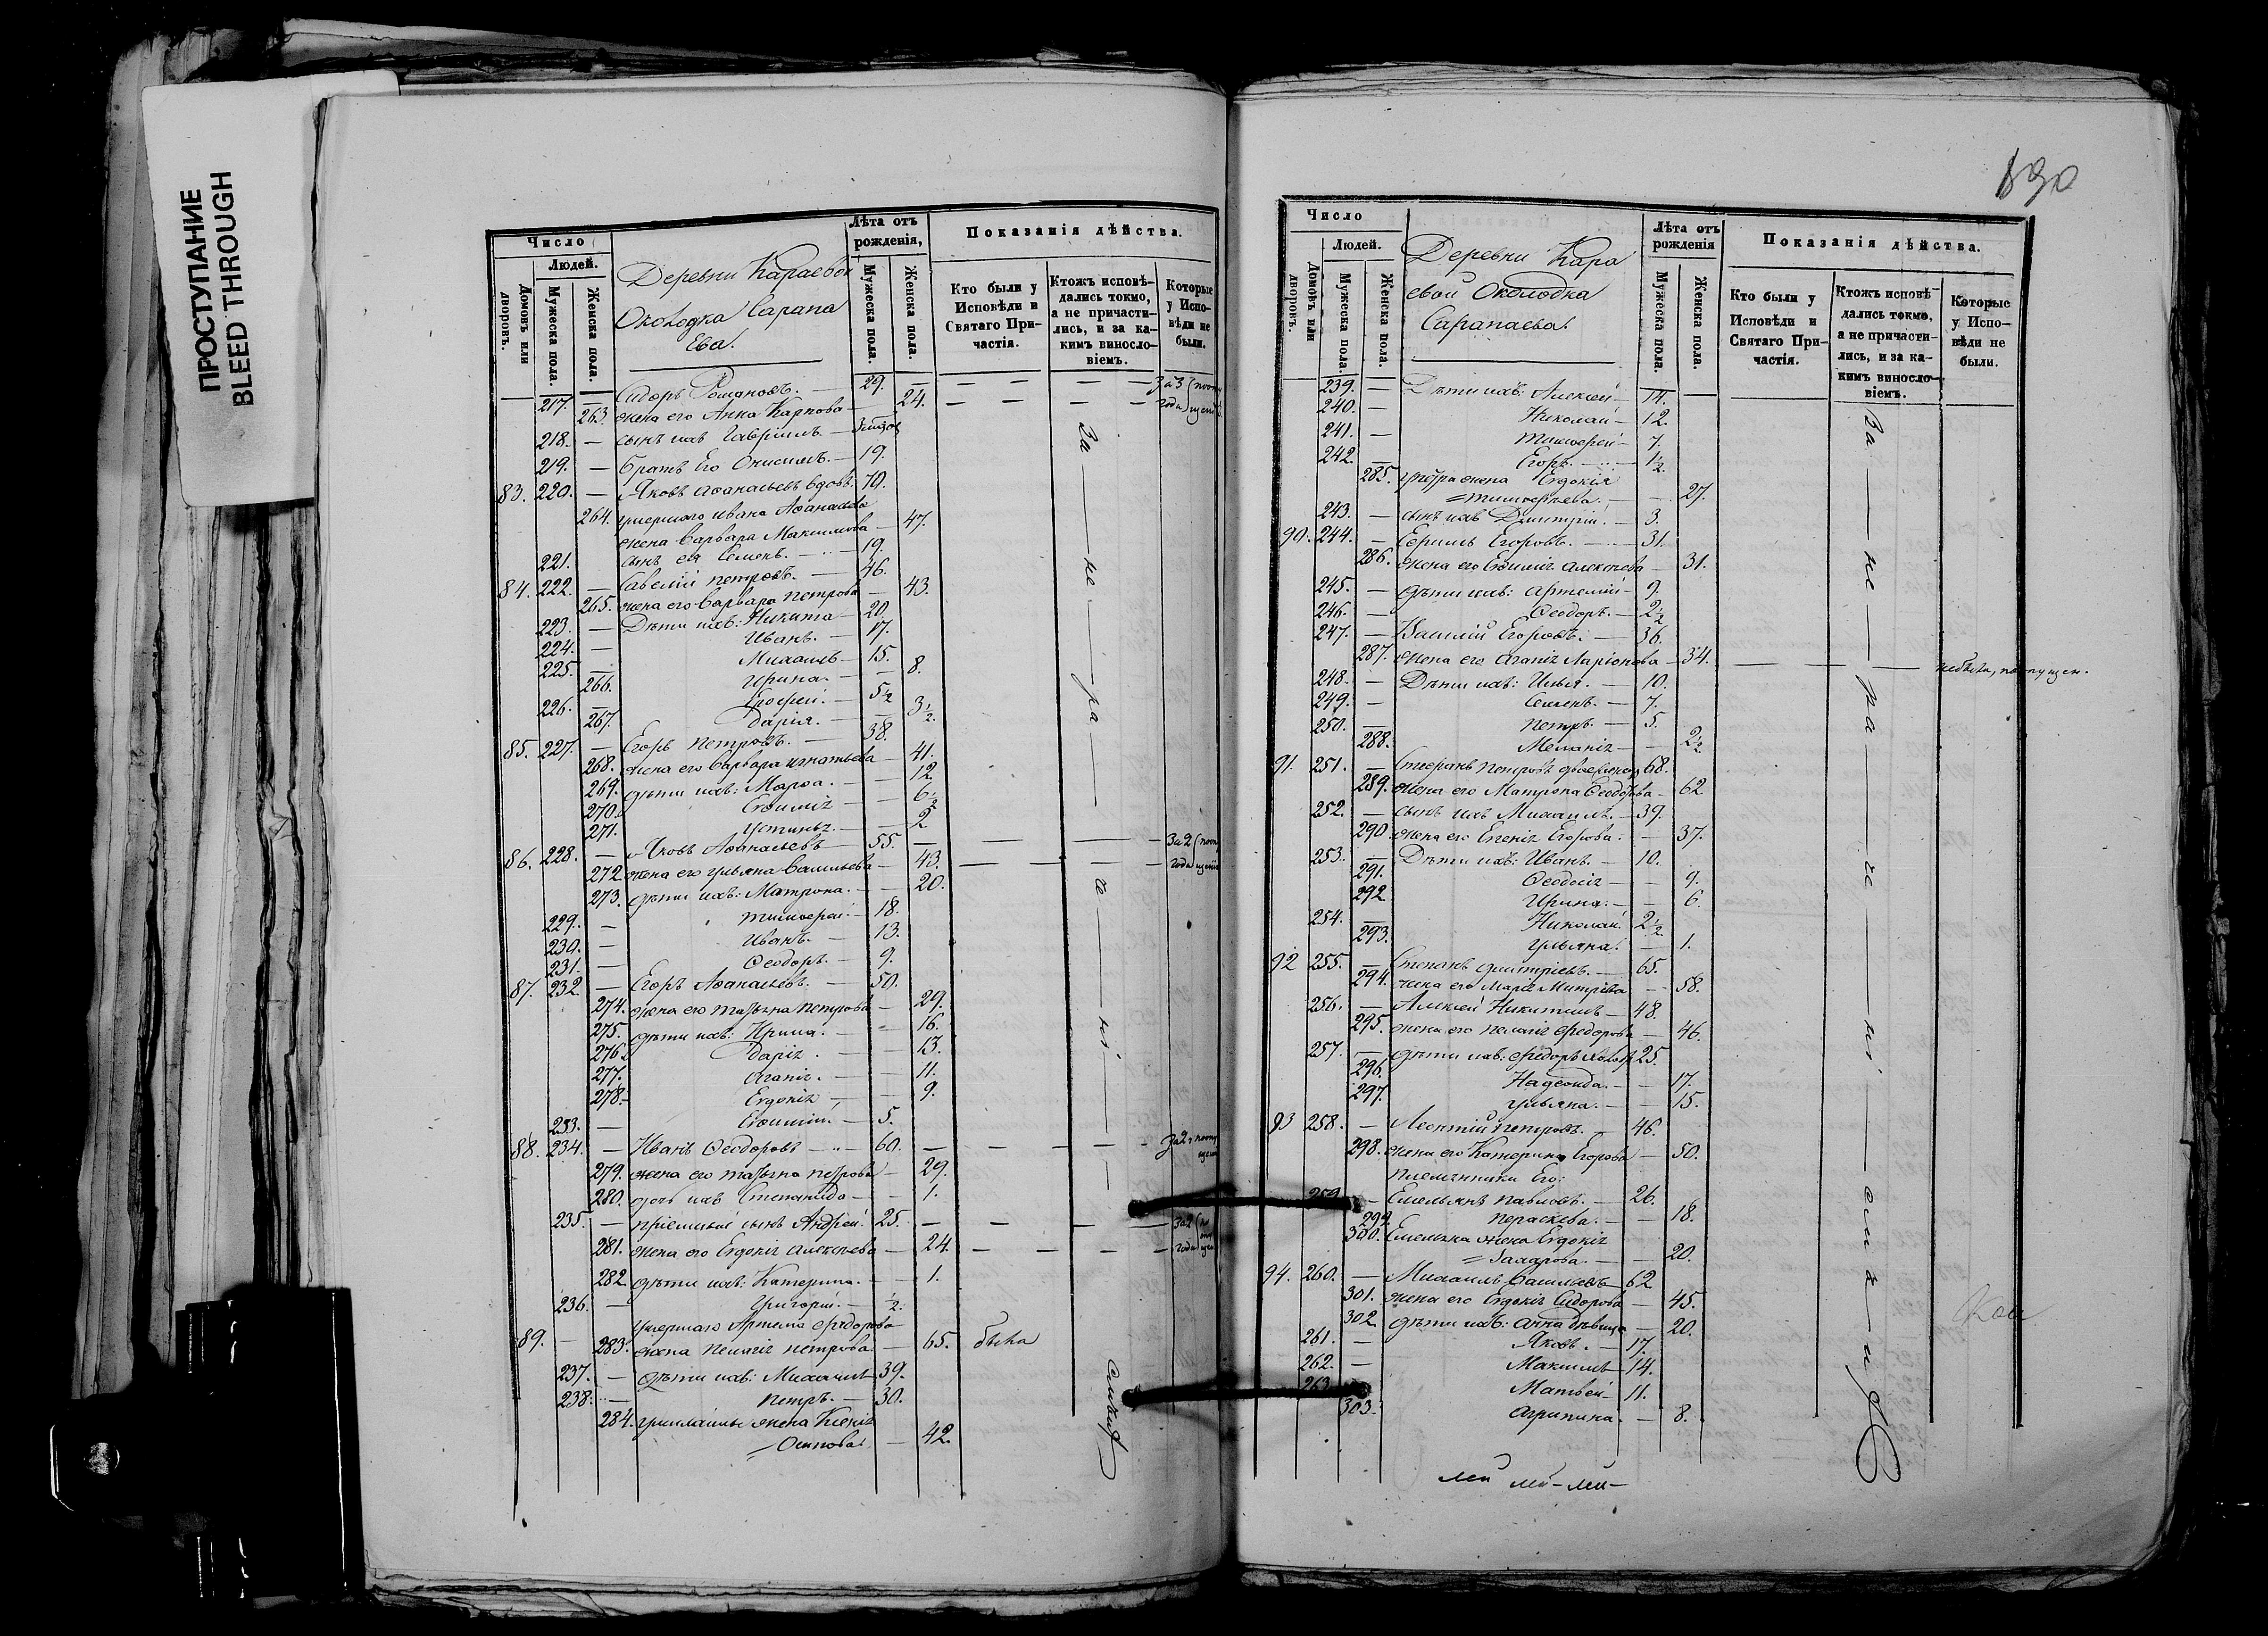 ПРОСТУПАНИЕ
BLEED THROUGH
Число
Людей.
Домовъ или дворовъ.
Мужеска пола.
Женска пола.
Деревни Караевой
Околодка Сарапа
Ева.
Лѣта отъ
рожденія,
Мужеска пола.
Женска пола.
Показанія дѣйства.
Кто были у
Исповѣди и
Святаго При-
частія.
Ктожъ исповѣ-
дались токмо,
а не причасти-
лись, и за ка-
кимъ винос­ло-
віемъ.
Которые
у Испо-
вѣди не
были.
217. — Сидоръ Романовъ. — 29. — за 3
263. жена его Анна Карпова — 24. — года
218. — сынъ ихъ Гавріилъ. —
219. — братъ Его Онисимъ. — 19.
83. 220. — Яковъ Аѳанасьевъ вдовъ. 70.
264. умершаго Ивана Аѳанасьева
жена Варвара Максимова — 47.
221. сынъ ея Семенъ. — 19.
84. 222. — Савелій Петровъ. — 46.
265. жена его Варвара Петрова — 43.
223. — Дѣти ихъ: Никита — 20
224. — Иванъ. — 17.
225. — Михаилъ — 15.
266. Ирина. — 8.
226. — Ерофей. — 5½
267. Дарія. — 3½.
85. 227. — Егоръ Петровъ. — 38.
268. жена его Варвара Игнатьева — 41.
269. дѣти ихъ: Марѳа. — 12
270. Евѳимія — 6½
271. Устинья. — 2
86. 228. — Яковъ Аѳанасьевъ — 55. — за 2
272. жена его Ульяна Васильева — 43. — года
273. дѣти ихъ: Матрона. — 20.
229. — Тимоѳей. — 18.
230. — Иванъ. — 13.
231. — Ѳеодоръ. — 9.
87. 232. — Егоръ Аѳанасьевъ. — 50.
274. жена его Татьяна Петрова — 29.
275. дѣти ихъ: Ирина. — 16.
276. Дарія. — 13.
277. Агапія. — 11.
278. Евдокія — 9.
233. — Евѳимій. — 5.
88. 234. — Иванъ Ѳеодоровъ — 60. — за 2
279. жена его Татьяна Петрова — 29.
280. дочь ихъ Степанида — 1.
235. — пріемный сынъ Андрей. 25. — за 2
281. жена его Евдокія Алексѣева — 24. — года
282. дѣти ихъ: Катерина. — 1.
236. — Григорій. — ½.
89. — умершаго Артема Ѳедорова
283. жена Пелагія Петрова. — 65. была
237. — дѣти ихъ: Михаилъ — 39.
238. — Петръ. — 30.
284. жена Ксенія
Осипова. — 42.
За — не — ра — че — ні — емъ
890
Число
Людей.
Домовъ или дворовъ.
Мужеска пола.
Женска пола.
Деревни Кара
евой Околодка
Сарапаева.
Лѣта отъ
рожденія
Мужеска пола.
Женска пола.
Показанія дѣйства.
Кто были у
Исповѣди и
Святаго При-
частія.
Ктожъ исповѣ-
дались токмо,
а не причасти-
лись, и за ка-
кимъ винос­ло-
віемъ.
Которые
у Испо-
вѣди не
были.
239. — Дѣти ихъ: Алексѣй — 14.
240. — Николай — 12.
241. — Тимоѳей — 7.
242. — Егоръ. — 1½.
285. Петра жена Евдокія
Тимоѳеева. — 27.
243. — сынъ ихъ Димитрій. — 3.
90. 244. — Егоровъ. — 31.
286. жена его Евѳимія Алексѣева — 31.
245. — дѣти ихъ: Артемій — 9.
246. — Ѳеодоръ. — 2½
247. — Василій Егоровъ. — 36.
287. жена его Агапія Ларіонова — 34. — небыла,
248. — Дѣти ихъ: Илья. — 10.
249. — Семенъ. — 7.
250. — Петръ. — 5.
288. Меланія — 2½
91. 251. — Стефанъ Петровъ 68.
289. жена его Матрона Ѳеодорова — 62
252. — сынъ ихъ Михаилъ. — 39.
290. жена его Евгенія Егорова. — 37.
253. — Дѣти ихъ: Иванъ. — 10.
291. Ѳеодосія — 9.
292. Ирина. — 6.
254. — Николай. 2½
293. Ульяна. — 1.
92 255. — Степанъ Димитріевъ. — 65.
294. жена его Марія Митріева — 58.
256. — Алексѣй Никитинъ — 48.
295. жена его Пелагія Ѳедорова — 46.
257. — дѣти ихъ: Ѳедоръ 25.
296. Надежда. — 17.
297. Ульяна. — 15.
93 258. — Леонтій Петровъ. — 46.
298. жена его Катерина Егорова — 50.
Племянники Его:
259. — Емельянъ Павловъ. — 26.
299. Параскева. — 18.
300. Емельяна жена Евдокія
Захарова. — 20.
94. 260. — Михаилъ Васильевъ — 62
301. жена его Евдокія Сидорова — 45.
302. дѣти ихъ: Анна дѣвица — 20.
261. — Яковъ. — 17.
262. — Максимъ — 14.
263. — Матвей — 11.
303. Агрипина. — 8.
За — не — ра — че — ні — емъ